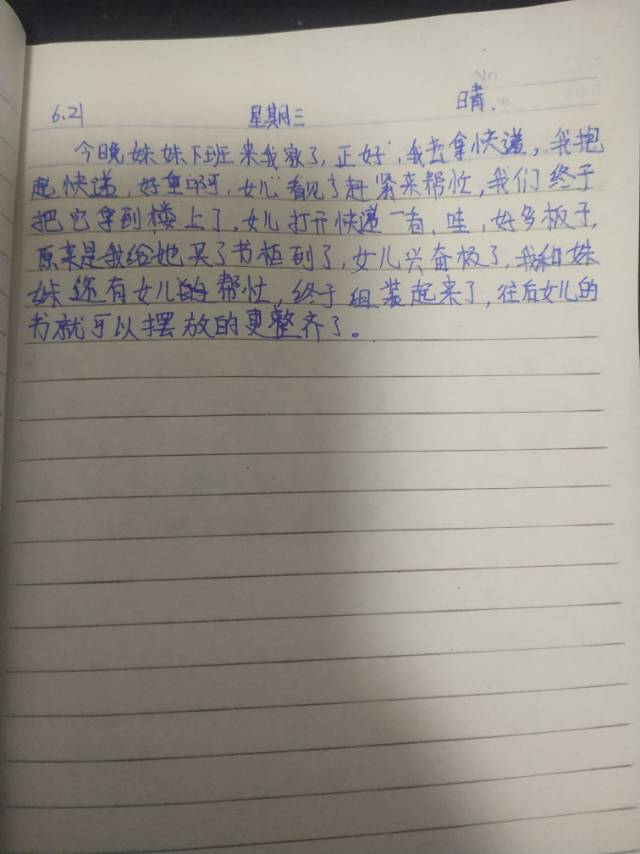 6.21 星期三 晴.
今晚妹妹下班来我家了,正好,我去拿快递,我抱
起快递,好重啊,女儿看见了赶紧来帮忙,我们终于
把它拿到楼上了,女儿打开快递一看,哇,好多板子,
原来是我给她买了书柜到了,女儿兴奋极了,我和妹
妹还有女儿的帮忙,终于组装起来了,往后女儿的
书就可以摆放的更整齐了。